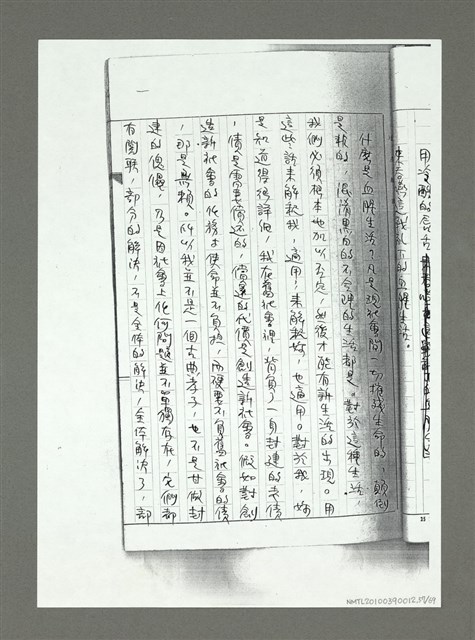 用冷酷的
來看待這我說下的血腥生活。
什麼是血腥生活？凡是現社會間一切摧殘生命的，顛倒
是非的，混淆黑白的不合理的生活都是。對於這種生活，
我們必須根本地加以否定，然後才能有新生活的出現。用
這些話來解救我，適用；來解救妳，也適用。對於我，妳
是知道得很詳細，我在舊社會裡，背負了一身封建的老債
，債是需要償還的，償還的代價是創造新社會。假如對創
造新社會的任務才使命並不負擔，而硬要不負舊社會的債
，那是無賴。所以我並不是一個古典孝子，也不是甘做封
建的傀儡，乃是因社會上任何問題並不單獨存在，它們都
有関联，部分的解決，不是全体的解決，全体解決了，部
25
NMTL20100390012